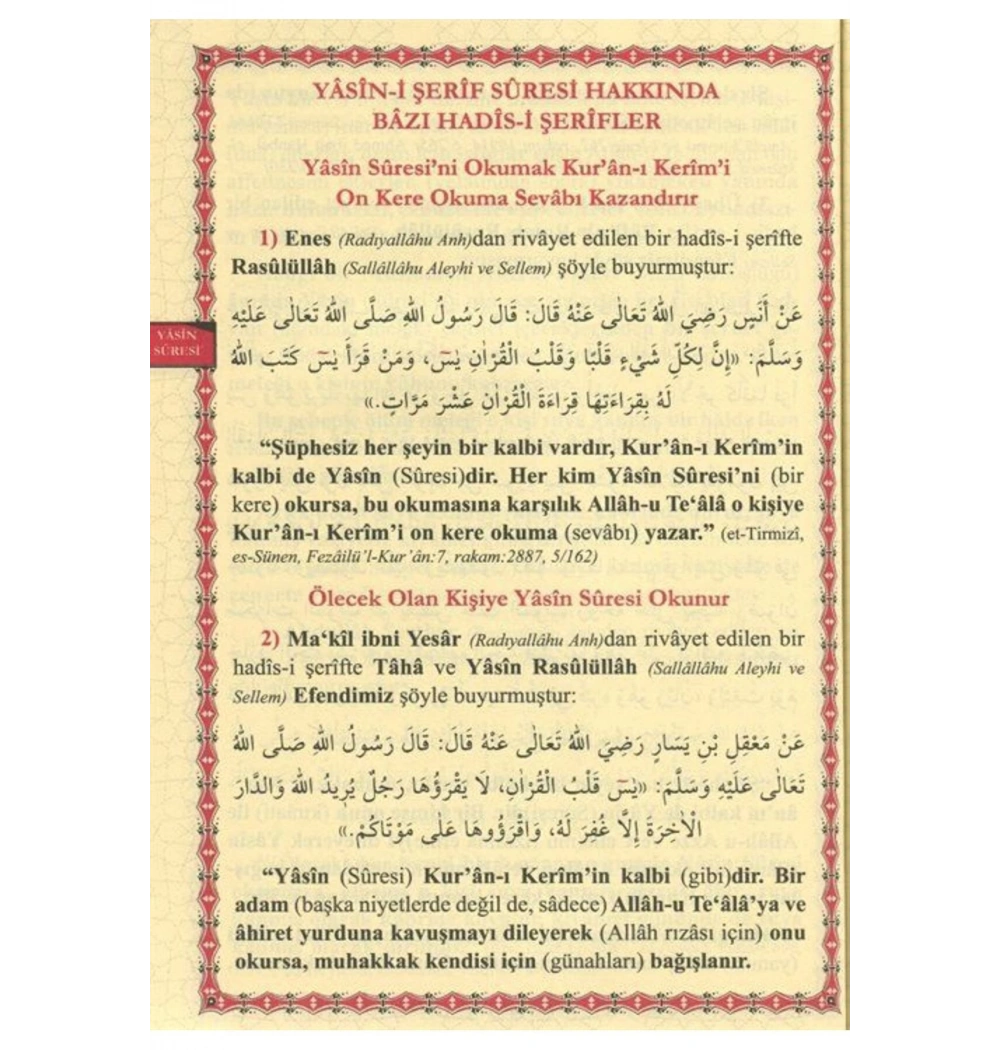 YÂSÎN-İ ŞERÎF SÛRESİ HAKKINDA
BÂZI HADÎS-İ ŞERÎFLER
Yâsîn Sûresi’ni Okumak Kur’ân-ı Kerîm’i
On Kere Okuma Sevâbı Kazandırır
1) Enes (Radıyallâhu Anh)dan rivâyet edilen bir hadîs-i şerîfte
Rasûlüllâh (Sallâllâhu Aleyhi ve Sellem) şöyle buyurmuştur:
عَنْ أَنَسٍ رَضِيَ اللهُ تَعَالٰى عَنْهُ قَالَ: قَالَ رَسُولُ اللهِ صَلَّى اللهُ تَعَالٰى عَلَيْهِ
YÂSÎN
SÛRESİ
وَسَلَّمَ: «إِنَّ لِكُلِّ شَيْءٍ قَلْبًا وَقَلْبُ الْقُرْاٰنِ يٰسٓ، وَمَنْ قَرَأَ يٰسٓ كَتَبَ اللهُ
لَهُ بِقِرَاءَتِهَا قِرَاءَةَ الْقُرْاٰنِ عَشْرَ مَرَّاتٍ.»
“Şüphesiz her şeyin bir kalbi vardır, Kur’ân-ı Kerîm’in
kalbi de Yâsîn (Sûresi)dir. Her kim Yâsîn Sûresi’ni (bir
kere) okursa, bu okumasına karşılık Allâh-u Te‘âlâ o kişiye
Kur’ân-ı Kerîm’i on kere okuma (sevâbı) yazar.” (et-Tirmizî,
es-Sünen, Fezâilü’l-Kur’ân:7, rakam:2887, 5/162)
Ölecek Olan Kişiye Yâsîn Sûresi Okunur
2) Ma‘kîl ibni Yesâr (Radıyallâhu Anh)dan rivâyet edilen bir
hadîs-i şerîfte Tâhâ ve Yâsîn Rasûlüllâh (Sallâllâhu Aleyhi ve
Sellem) Efendimiz şöyle buyurmuştur:
عَنْ مَعْقِلِ بْنِ يَسَارٍ رَضِيَ اللهُ تَعَالٰى عَنْهُ قَالَ: قَالَ رَسُولُ اللهِ صَلَّى اللهُ
تَعَالٰى عَلَيْهِ وَسَلَّمَ: «يٰسٓ قَلْبُ الْقُرْاٰنِ، لَا يَقْرَؤُهَا رَجُلٌ يُرِيدُ اللهَ وَالدَّارَ
الْاٰخِرَةَ إِلَّا غُفِرَ لَهُ، وَاقْرَؤُوهَا عَلٰى مَوْتَاكُمْ.»
“Yâsîn (Sûresi) Kur’ân-ı Kerîm’in kalbi (gibi)dir. Bir
adam (başka niyetlerde değil de, sâdece) Allâh-u Te‘âlâ’ya ve
âhiret yurduna kavuşmayı dileyerek (Allâh rızâsı için) onu
okursa, muhakkak kendisi için (günahları) bağışlanır.